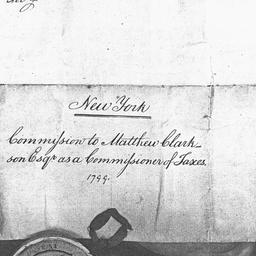 New York
Commission to Matthew Clark-
son Esqr. as a Commissioner of Taxes.
1799.